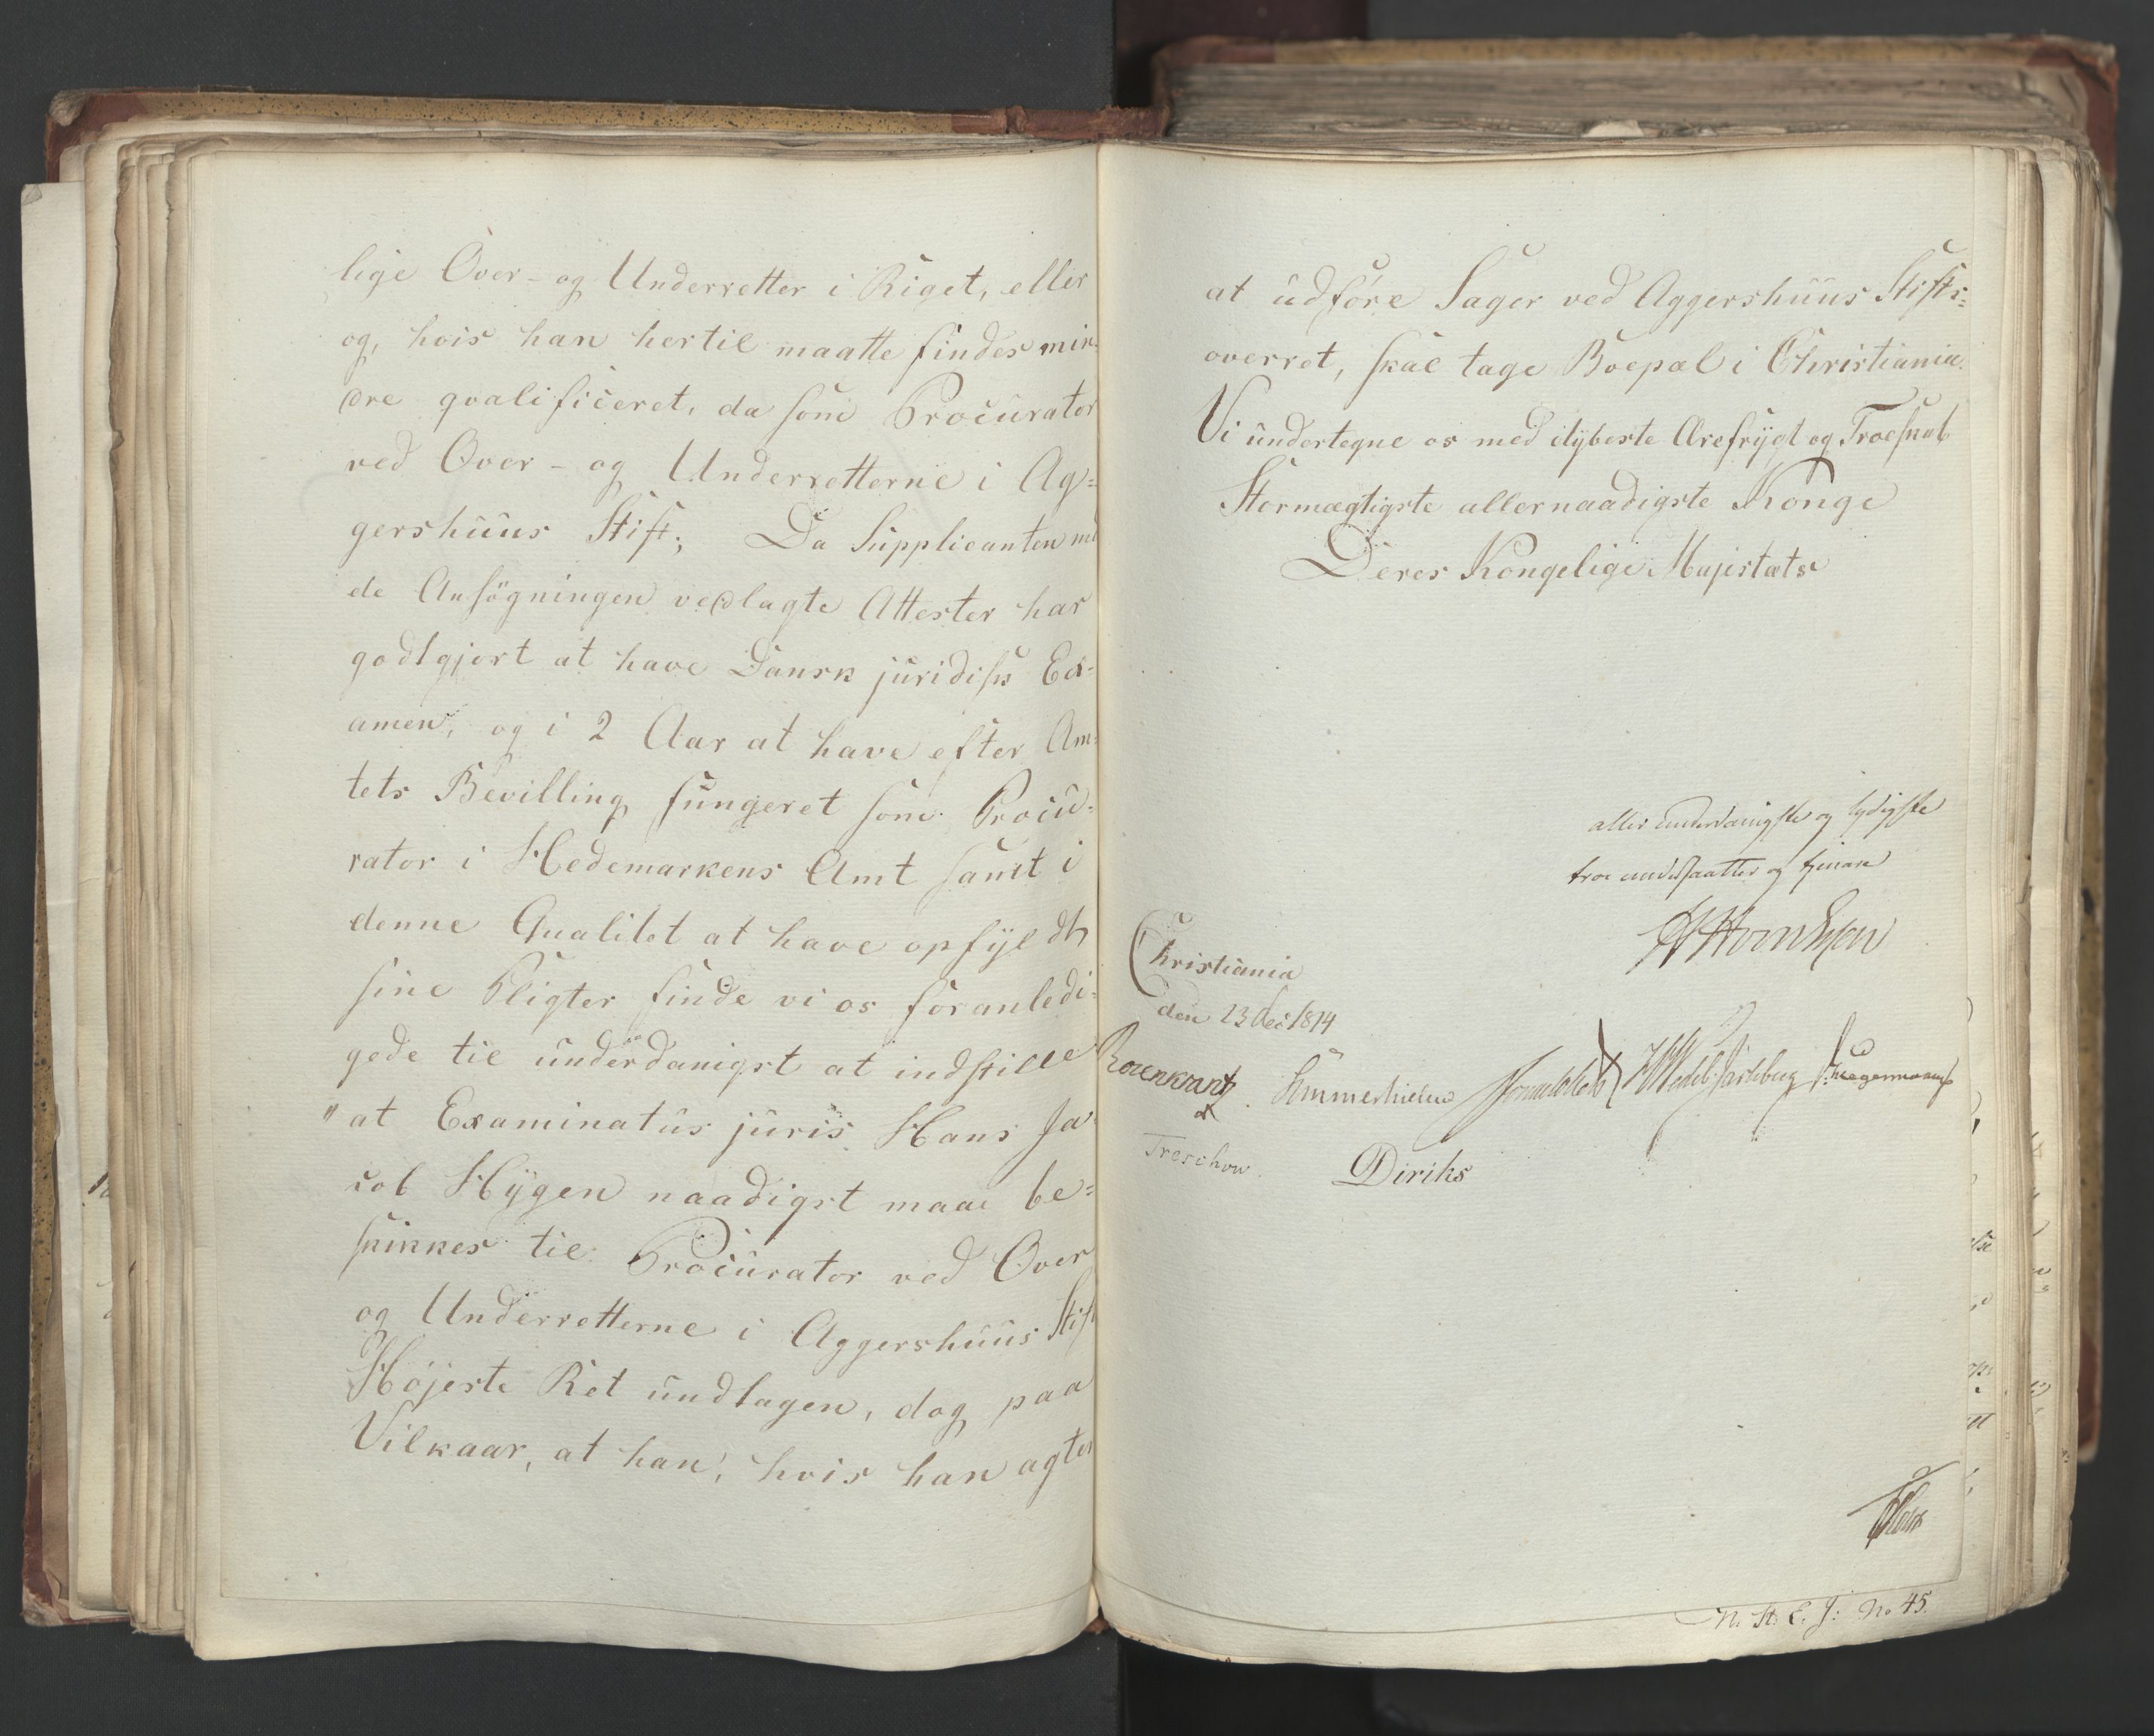 lige Over- og Underretter i Riget, eller
og, hvis han hertil maatte findes min-
dre qvalificeret, da som Procurator
ved Over- og Underretterne i Ag=
gershuus Stift; Da Supplicanten med
de Ansøgningen vedlagte Attester har
godtgjort at have Dansk juridisk Ex-
amen, og i 2 Aar at have efter Am-
tets Bevilling fungeret som Procu-
rator i Hedemarkens Amt samt i
denne Qualitet at have opfyldt
sine Pligter finde vi os foranledi-
gede til underdanigst at indstille
"at Examinatus juris Hans Ja-
cob Hygen naadigst maae be=
skikkes til Procurator ved Over
og Underretterne i Aggershuus Stift
Højeste Ret undtagen, dog paa
Vilkaar, at han, hvis han agter
at udføre Sager ved Aggershuus Stifts=
overret, skal tage Boepæl i Christiania.
Vi undertegne os med dybeste Ærefrygt og Troeskab
Stormægtigste allernaadigste Konge
Deres Kongelige Majestæts
aller underdanigste og lydigste
troe undersaatter og tjenere
Christiania
den 23 Dec 1814
Rosenkrantz. Sommerhielm HWedel Jarlsberg Hegermann
Treschow. Diriks
N. St. E. J: No 45.